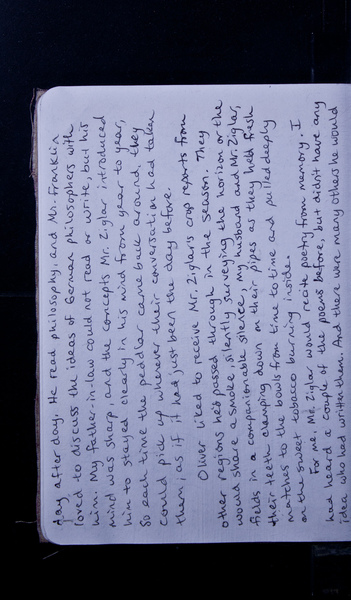 day after day. He read philosophy, and Mr. Franklin
loved to discuss the ideas of German philosophers with
him. My father-in-law could not read or write, but his
mind was sharp, and the concepts Mr. Ziglar introduced
him to stayed clearly in his mind from year to year,
So each time the peddler came back around, they
could pick up wherever their conversation had taken
them, as if it had just been the day before.
Oliver liked to receive Mr. Ziglar's crop reports from
other regions he'd passed through in the season. They
would share a smoke, silently surveying the horizon or the
fields in a companionable silence, my husband and Mr. Ziglar,
their teeth clamping down on their pipes as they held fresh
matches to the bowls from time to time and pulled deeply
on the sweet tobacco burning inside.
For me, Mr. Ziglar would recite poetry from memory. I
had heard a couple of the poems before, but didn't have any
idea who had written them. And there were many others he would